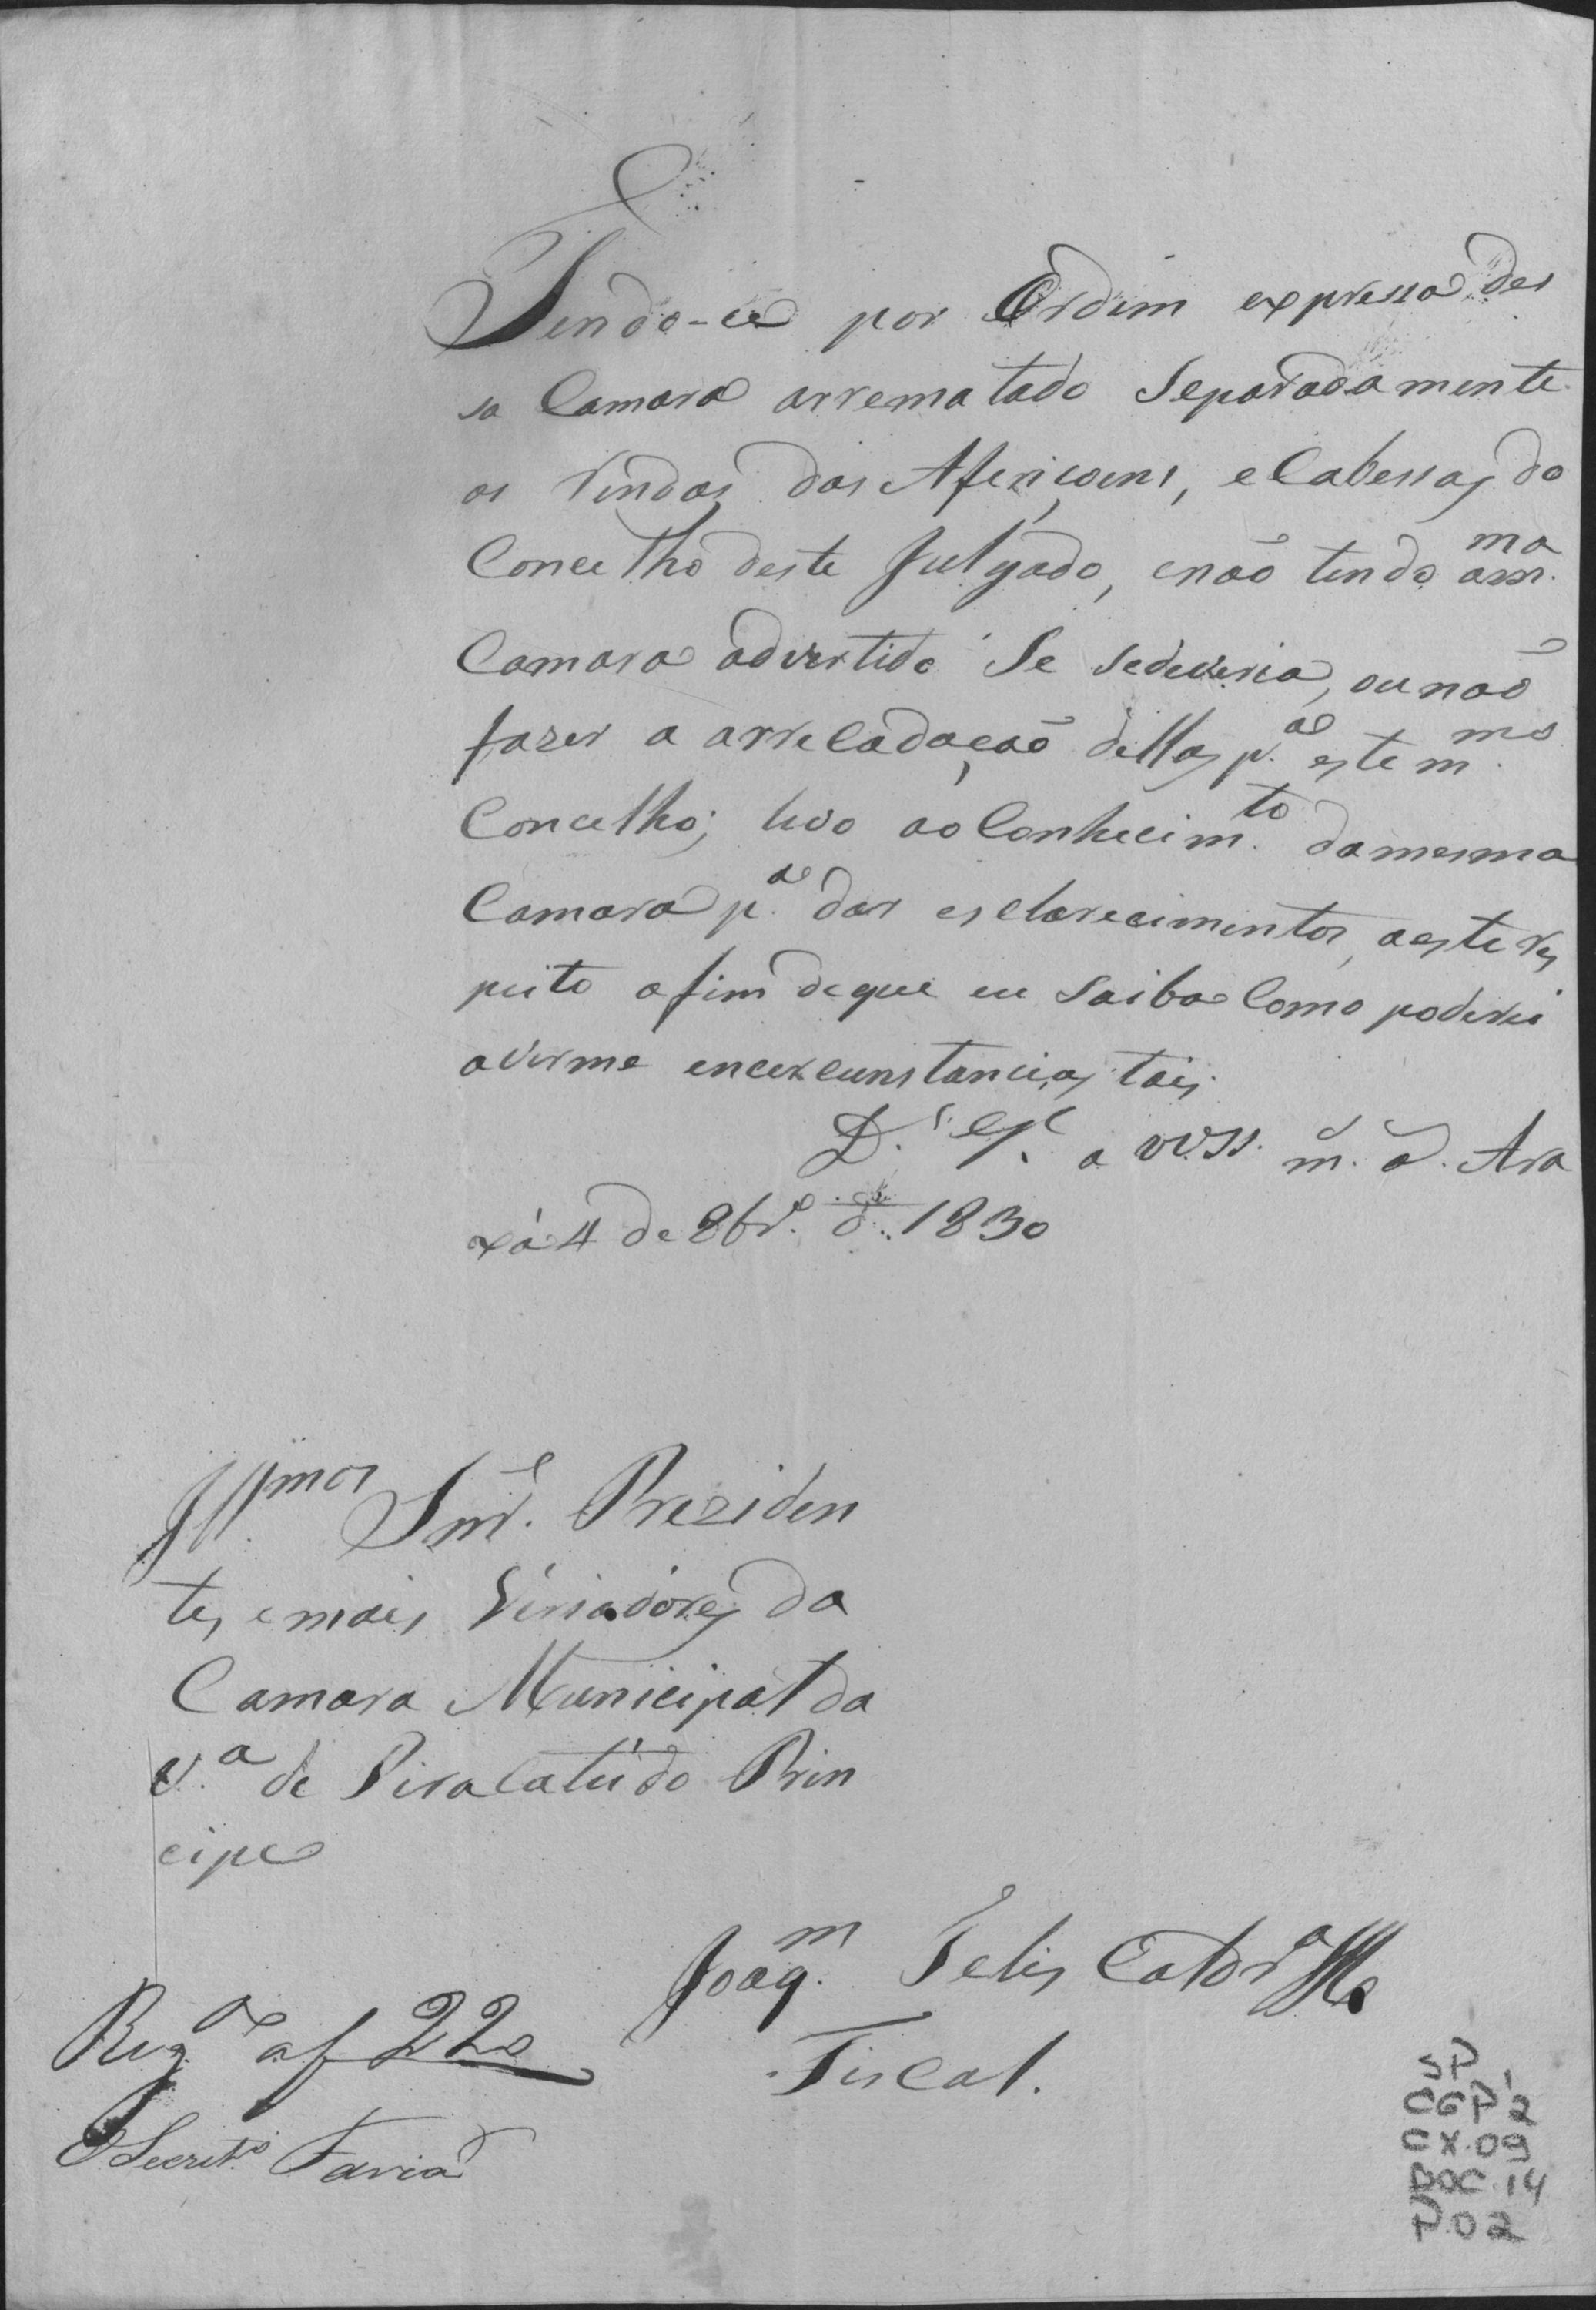 Tendo-ce por Ordim expressa des
sa Camara arrematado Separadamente
as Rendas das Afericoens, e Cabessas do
Concelho deste Julgado, enaõ tendo am.ma
Camara advertido Se sedeveria, ounaõ
fazer a arrecadaçaõ dellas p.a este m.mo
Concelho; levo ao Conhecim.to damesma
Camara p.a dar esclarecimentos, aeste res
peito afim deque eu Saiba Como poderei
avirme encercunstancias tais.
D.s G.e a VV.SS. m. a. Ara
xá 4 de 8br.o d. 1830
Ill.mos Snr.es Preziden
te, e mais Veriadores da
Camara Municipal da
V.a de Piracatú do Prin
cipe
Joaq.m Felis Cald.ra
Fiscal.
Reg.a af 22
O Secret.o Faria
SP
CGP 2
CX.09
DOC.14
P.02